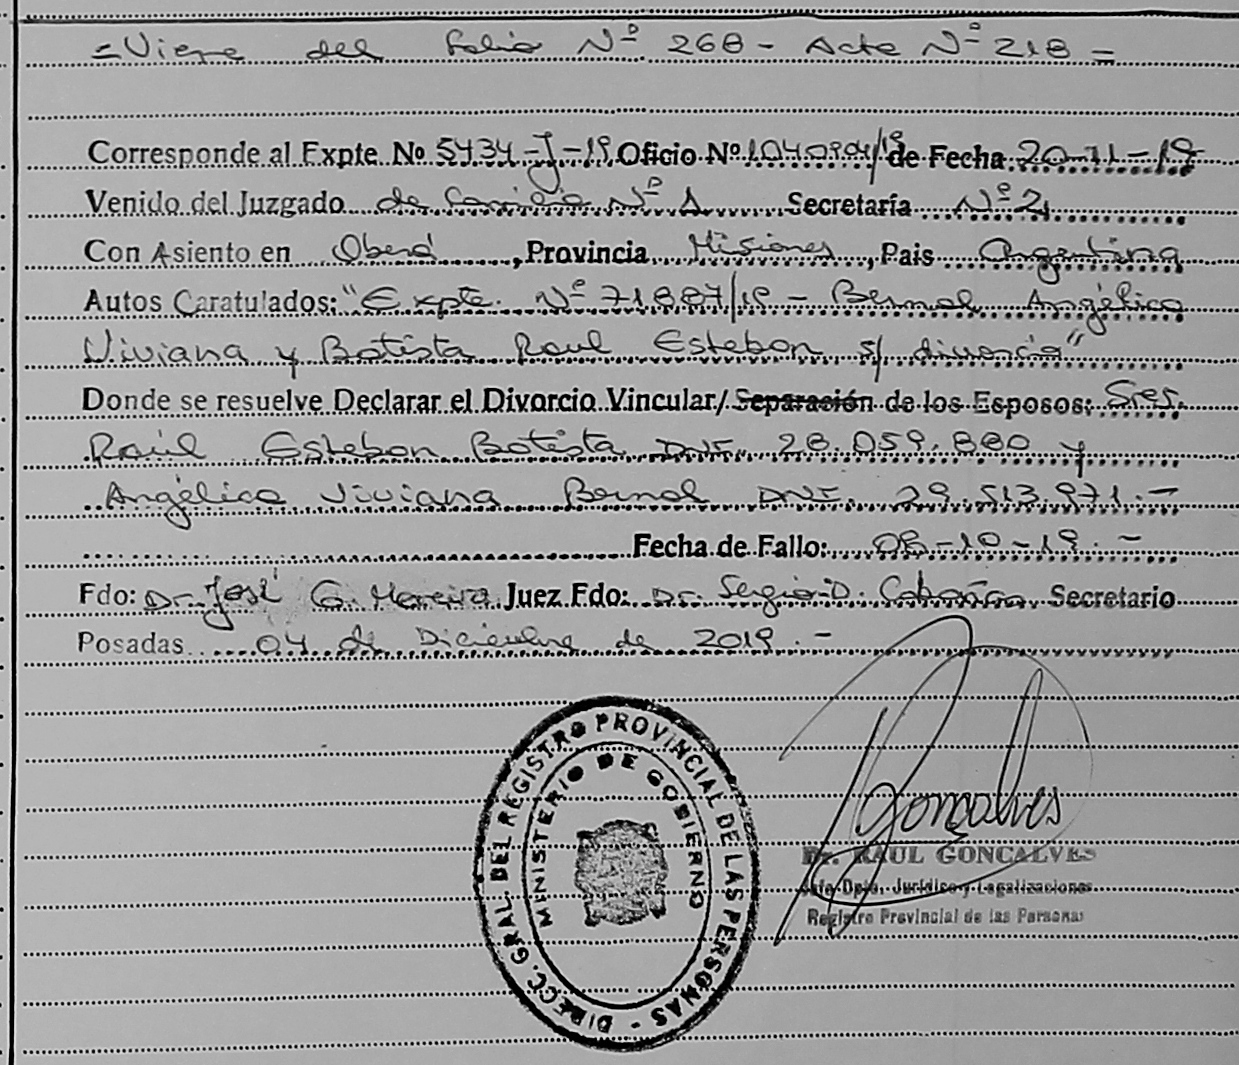 =Viene del folio Nº 268 - Acta Nº 218 =
Corresponde al Expte. Nº 5434-J-19 Oficio Nº 1040994/19 de Fecha 20-11-19
Venido del Juzgado de familia Nº 1 Secretaría Nº 2
Con Asiento en Oberá, Provincia Misiones, Pais Argentina
Autos Caratulados: "Expte. Nº 71887/19 - Bernal Angélica
Viviana y Batista Raul Esteban s/ divorcio"
Donde se resuelve Declarar el Divorcio Vincular/ Separación de los Esposos: Sres.
Raúl Esteban Batista DNI. 28.059.880 y
Angélica Viviana Bernal DNI. 29.513.971.-
Fecha de Fallo: 08-10-19.-
Fdo: Dr. José G. Moreira Juez Fdo: Dr. Sergio D. Cabañas Secretario
Posadas 04 de Diciembre de 2019.-
DIRECC. GRAL. DEL REGISTRO PROVINCIAL DE LAS PERSONAS -
MINISTERIO DE GOBIERNO
RGonçalves
Dr. RAUL GONCALVES
Jefe Dpto. Jurídico y Legalizaciones
Registro Provincial de las Personas